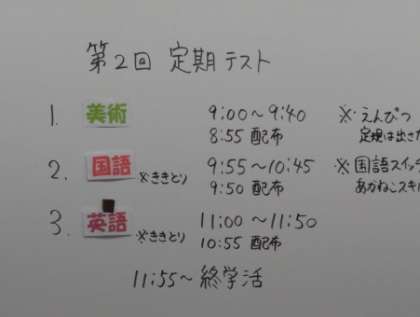 第2回 定期テスト
1. 美術 9:00～9:40 ※・えんぴつ
8:55 配布 定規は出さ
2. 国語 ※ききとり 9:55～10:45 ※国語スイッチ
9:50 配布 あかねこスキル
3. 英語 ※ききとり 11:00～11:50
10:55 配布
11:55～ 終学活